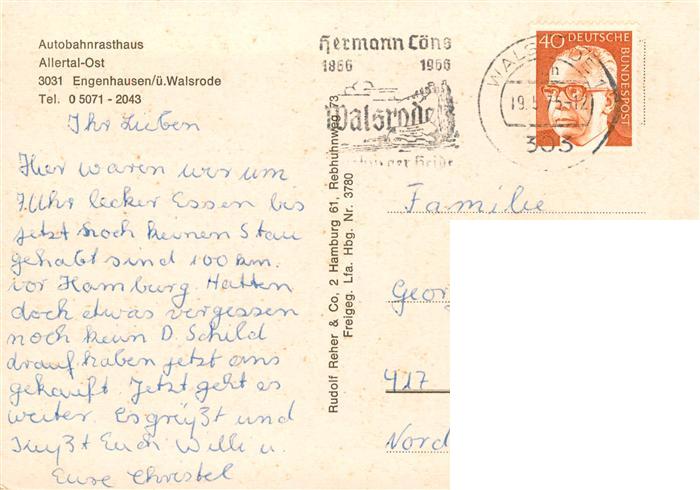 Autobahnrasthaus
Allertal-Ost
3031 Engenhausen/ü.Walsrode
Tel. 0 5071 - 2043
Ihr Lieben
Hier waren wir um
7.Uhr lecker Essen bis
jetzt noch keinen Stau
gehabt sind 100 km.
vor Hamburg. Hatten
doch etwas vergessen
noch kein D. Schild
drauf haben jetzt eins
gekauft. Jetzt geht es
weiter. Es grüßt und
Küßt Euch Willi u.
Eure Christel
Rudolf Reher & Co, 2 Hamburg 61, Rebhuhnweg 73
Freigeg. Lfa. Hbg. Nr. 3780
Hermann Löns
1866 1966
Walsrode
Heide
WALSRODE
303
40 DEUTSCHE
BUNDESPOST
Familie
Geor
417
Nord